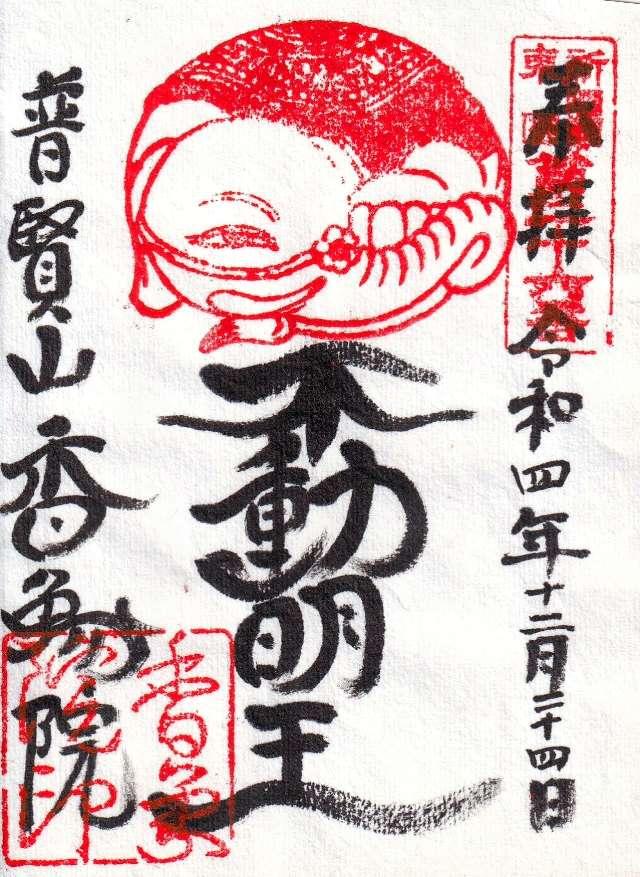 奉拝 令和四年十二月二十四日
不動明王
普賢山 香象院
香象
院印